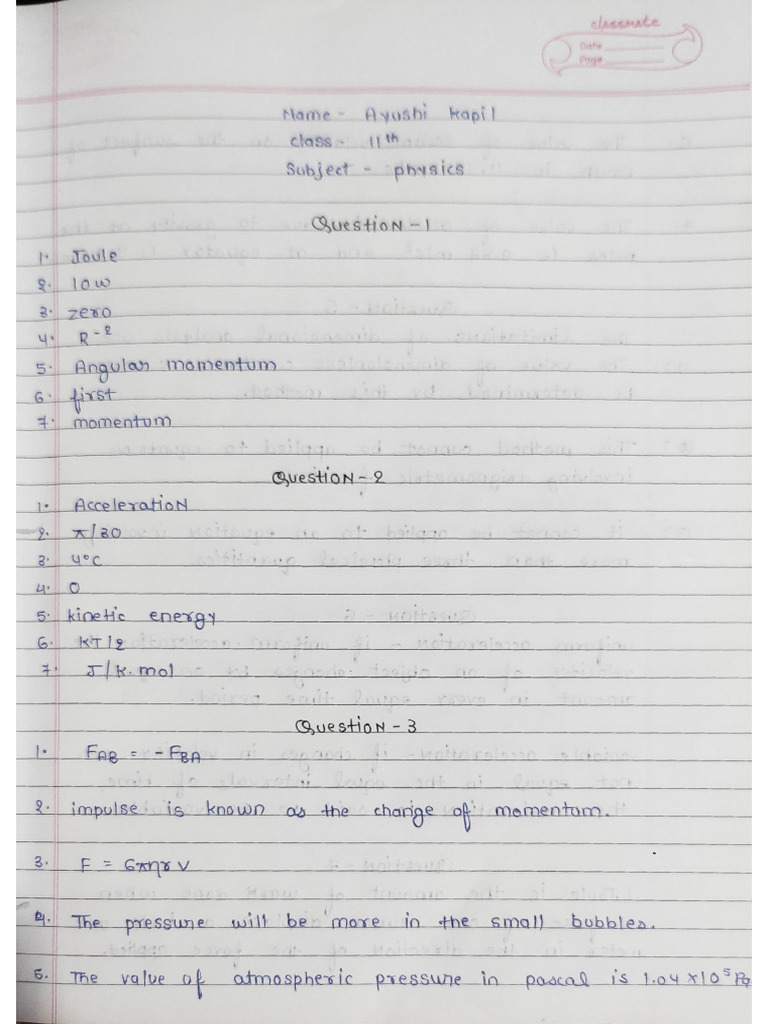 classmate
Date
Page
Name - Ayushi Kapil
class - 11th
Subject - physics
Question - 1
1. Joule
2. low
3. zero
4. R⁻²
5. Angular momentum
6. first
7. momentum
Question - 2
1. Acceleration
2. π/30
3. 4°C
4. 0
5. kinetic energy
6. KT/2
7. J/K.mol
Question - 3
1. FAB = -FBA
2. impulse is known as the change of momentum.
3. F = 6πηrv
4. The pressure will be more in the small bubbles.
5. The value of atmospheric pressure in pascal is 1.04 x 10⁵ Pa